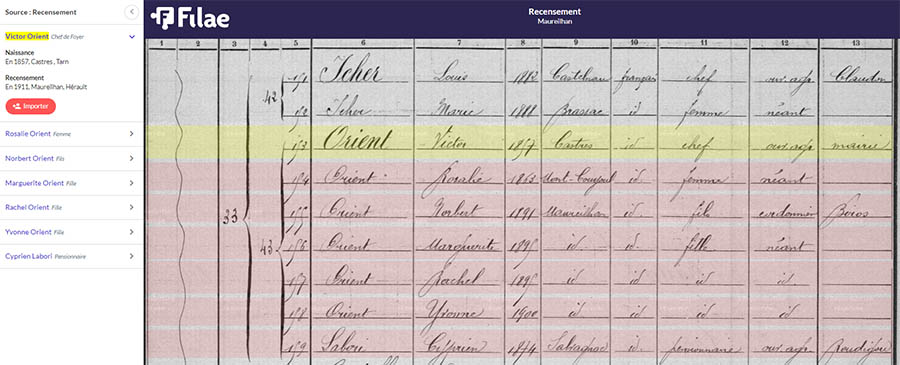 Source : Recensement
Victor Orient Chef de Foyer
Naissance
En 1857, Castres , Tarn
Recensement
En 1911, Maureilhan, Hérault
Importer
Rosalie Orient Femme
Norbert Orient Fils
Marguerite Orient Fille
Rachel Orient Fille
Yvonne Orient Fille
Cyprien Labori Pensionnaire
Filae
Recensement
Maureilhan
1 2 3 4 5 6 7 8 9 10 11 12 13
42
33
43
151 Icher Louis 1882 Castelnau français chef ouv. agr. Claudon
152 Icher Marie 1888 Brassac id femme néant
153 Orient Victor 1857 Castres id chef ouv. agr. mairie
154 Orient Rosalie 1863 femme néant
155 Orient Norbert 1891 Maureilhan id fils cordonnier
156 Orient Marguerite 1895 id id fille néant
157 Orient Rachel id id id id
158 Orient Yvonne 1900 id id id id
159 Labori Cyprien 1874 id pensionnaire ouv. agr.